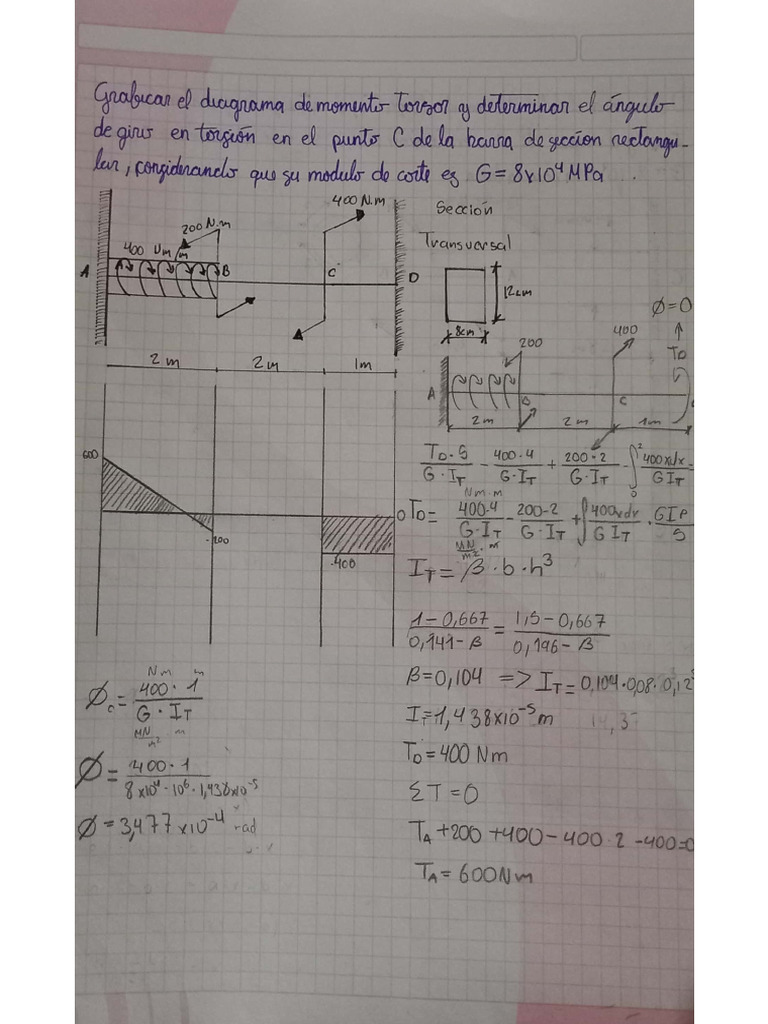 Graficar el diagrama de momento Torsor y determinar el ángulo
de giro en torsión en el punto C de la barra de sección rectangu-
lar, considerando que su modulo de corte es G = 8x10⁴ MPa .
400 N.m
200 N.m
400 Nm/m
A
B
C
D
2m
2m
1m
Sección
Transversal
12cm
8cm
Ø=0
200
400
TD
A
B
C
2m
2m
1m
600
-200
-400
0
TD·5/G·IT - 400·4/G·IT + 200·2/G·IT - ∫₀² 400xdx/GIT =
Nm·m
TD = 400·4/G·IT - 200·2/G·IT + ∫ 400xdx/GIT · GIP/5
MN/m² · m
IT = β·b·h³
1-0,667/0,141-β = 1,5-0,667/0,196-β
β=0,104 => IT=0,104·0,08·0,12³
I=1,438x10⁻⁵m
TD=400 Nm
ΣT=0
TA+200+400-400·2-400=0
TA=600Nm
Nm m
Øc = 400·1/G·IT
MN/m² m
Ø = 400·1/8x10⁴·10⁶·1,438x10⁻⁵
Ø = 3,477x10⁻⁴ rad